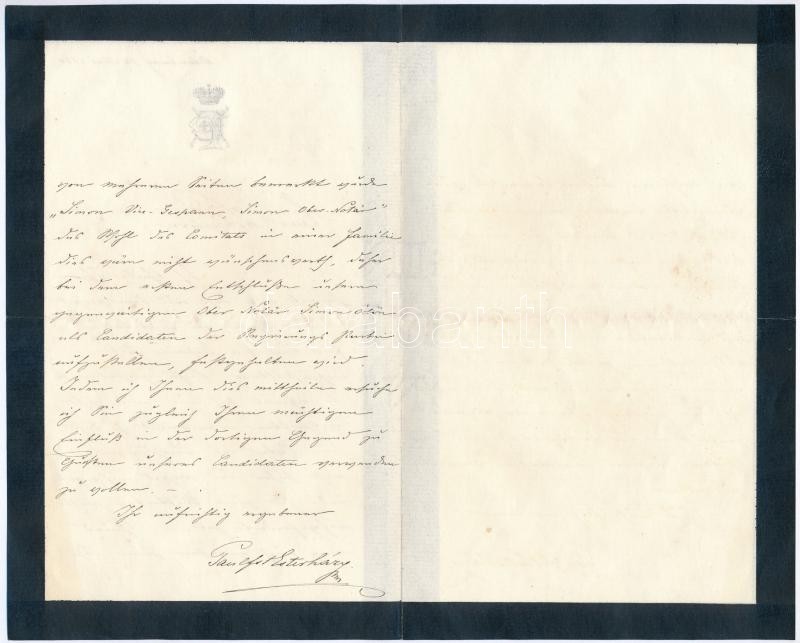 von mehreren Seiten bemerkt wurde
„Simon Vice-Gespann, Simon Ober-Notär"
das Wohl des Comitats in einer Familie
dies wäre nicht wünschenswerth, daher
bei dem ersten Entschluße unsern
gegenwärtigen Ober Notär Simon Ödön
als Candidaten der Regierungs Partei
aufzustellen, festgehalten wird.
Indem ich Ihnen dies mittheile ersuche
ich Sie zugleich Ihren mächtigen
Einfluß in der dortigen Gegend zu
Gunsten unseres Candidaten verwenden
zu wollen. –
Ihr aufrichtig ergebener
Paul Fst Esterházy